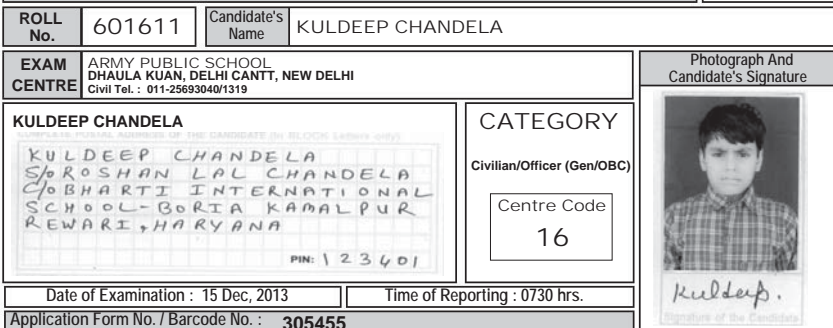 ROLL No. 601611 Candidate's Name KULDEEP CHANDELA
EXAM CENTRE
ARMY PUBLIC SCHOOL
DHAULA KUAN, DELHI CANTT, NEW DELHI
Civil Tel. : 011-25693040/1319
Photograph And
Candidate's Signature
KULDEEP CHANDELA
COMPLETE POSTAL ADDRESS OF THE CANDIDATE (In BLOCK Letters only)
KULDEEP CHANDELA
S/o ROSHAN LAL CHANDELA
C/o BHARTI INTERNATIONAL
SCHOOL-BORIA KAMALPUR
REWARI, HARYANA
PIN: 123401
CATEGORY
Civilian/Officer (Gen/OBC)
Centre Code
16
Kuldeep.
Signature of the Candidate
Date of Examination : 15 Dec, 2013
Time of Reporting : 0730 hrs.
Application Form No. / Barcode No. : 305455